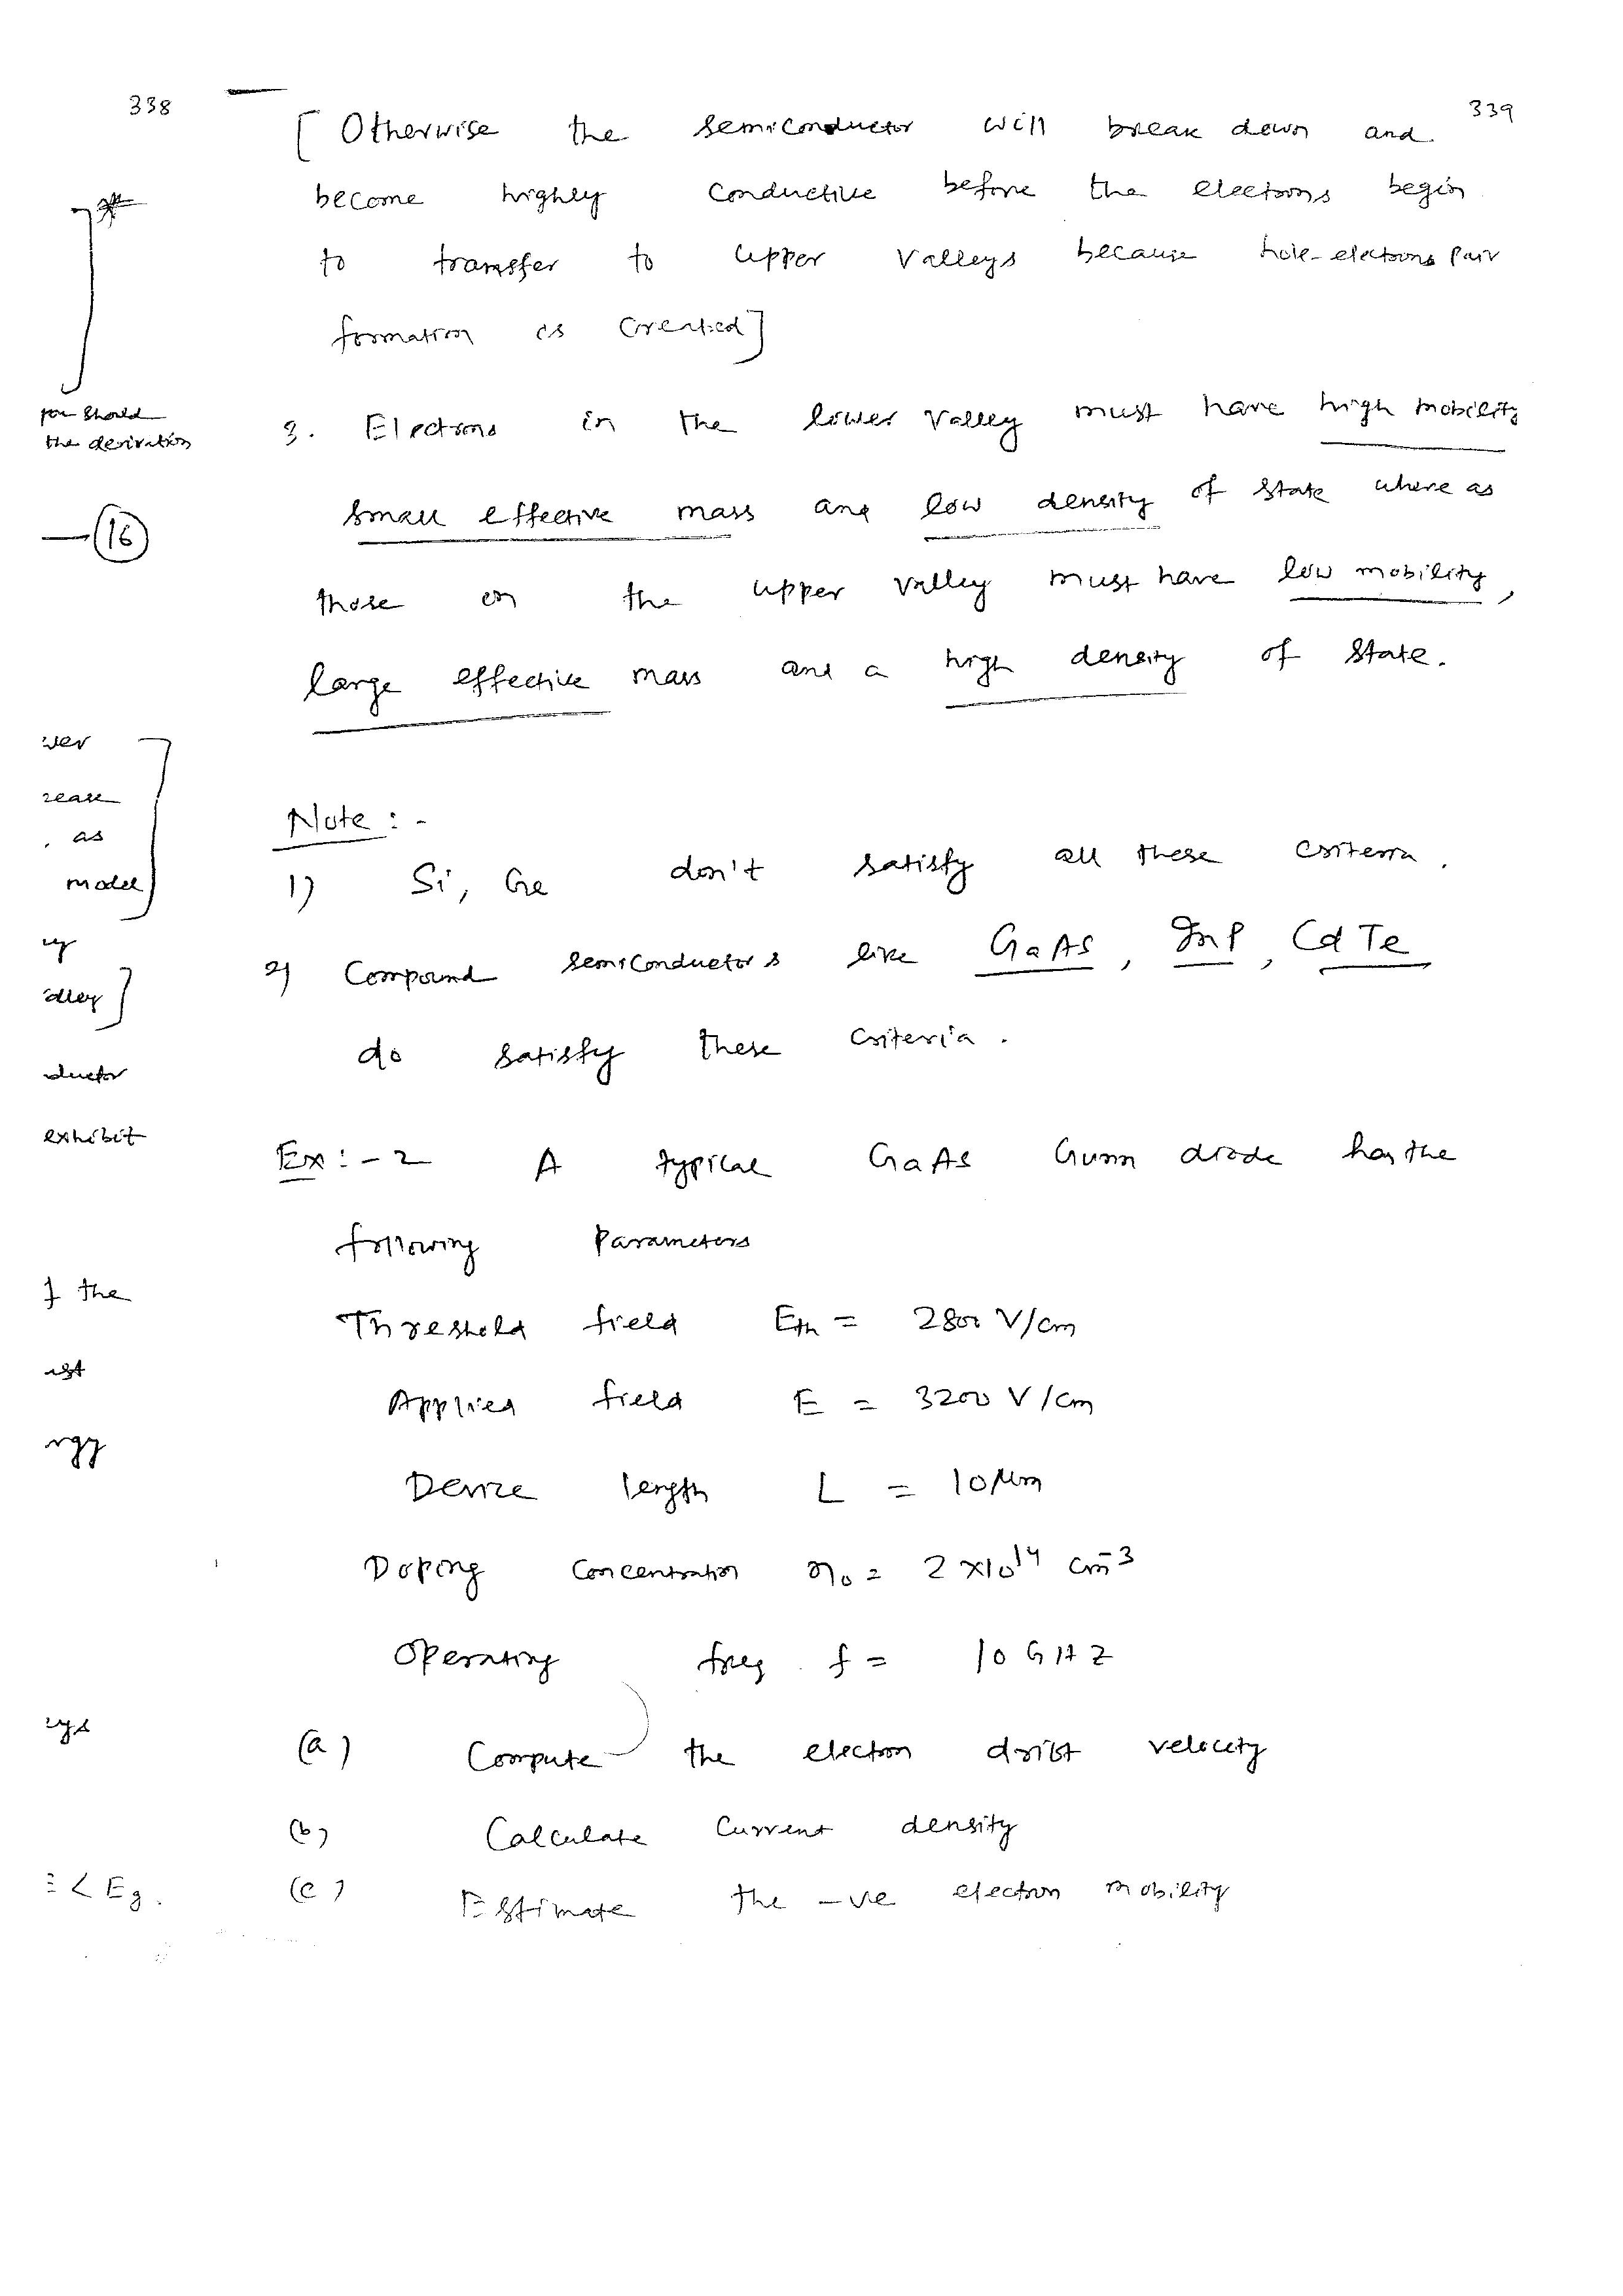 338
339
[ Otherwise the semiconductor will break down and
become highly conductive before the electrons begin
to transfer to upper valleys because hole-electrons pair
formation is created]
you should
the derivation
3. Electrons in the lower valley must have high mobility
small effective mass and low density of state where as
—(16)
those in the upper valley must have low mobility,
large effective mass and a high density of state.
rease
, as
model
Note : -
1) Si, Ge don't satisfy all these criteria.
2) Compound semiconductors like GaAs, InP, CdTe
do satisfy these criteria.
ductor
exhibit
Ex :- 2 A typical GaAs Gunn diode has the
following Parameters
f the
Threshold field Eth = 2800 V/cm
Applied field E = 3200 V/cm
rgy
Device length L = 10 μm
Doping concentration n0 = 2 x10^14 cm^-3
Operating freq. f = 10 GHZ
eys
(a) Compute the electron drift velocity
(b) Calculate current density
E < Eg.
(c) Estimate the -ve electron mobility